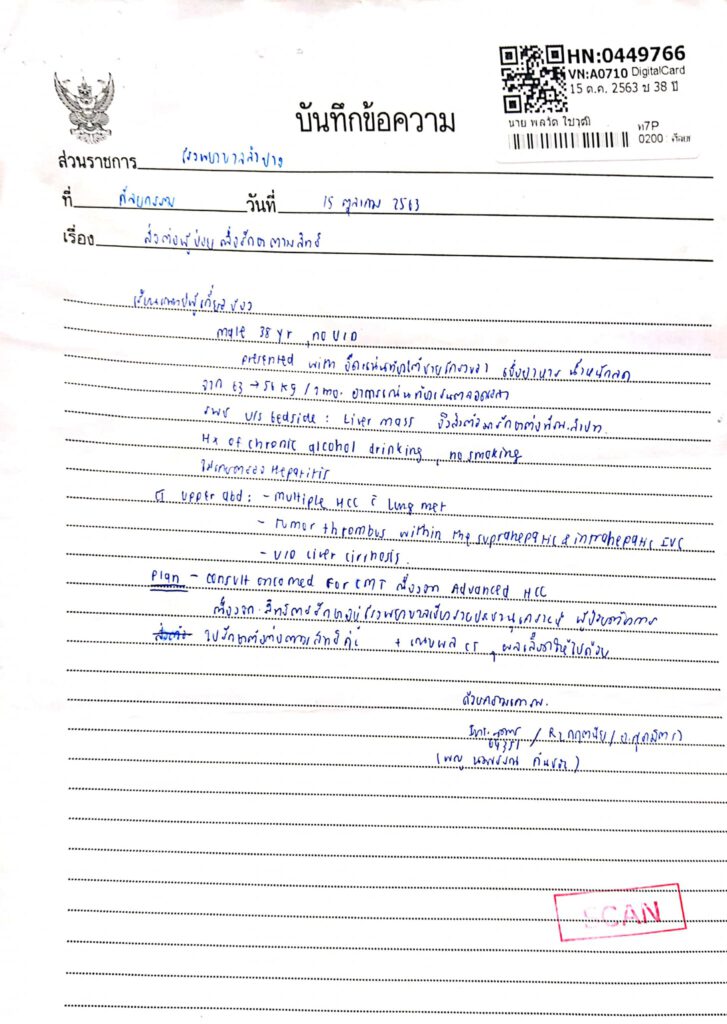 HN:0449766
VN:A0710 DigitalCard
15 ต.ค. 2563 ช 38 ปี
นาย พลวัต
0200 :
บันทึกข้อความ
ส่วนราชการ โรงพยาบาลลำปาง
ที่ ศัลยกรรม วันที่ 15 ตุลาคม 2563
เรื่อง ส่งต่อผู้ป่วยเพื่อรักษาตามสิทธิ์
เรียนแพทย์ผู้เกี่ยวข้อง
male 38 yr, no U/D
presented with อืดแน่นท้อง เบื่ออาหาร น้ำหนักลด
จาก 63 → 56 kg / 2 mo.
รพช U/S bedside : Liver mass
Hx of chronic alcohol drinking, no smoking
Hepatitis
CT upper abd : - multiple HCC c̄ lung met
- Tumor thrombus within the suprahepatic & intrahepatic IVC
- U/D liver cirrhosis.
Plan - consult oncomed for CMT เนื่องจาก Advanced HCC
เนื่องจาก สิทธิการรักษาอยู่โรงพยาบาล ผู้ป่วยต้องการ
ไปรักษาต่อ + แนบผล CT, ผลเลือดให้ไปด้วย
ด้วยความเคารพ.
SCAN